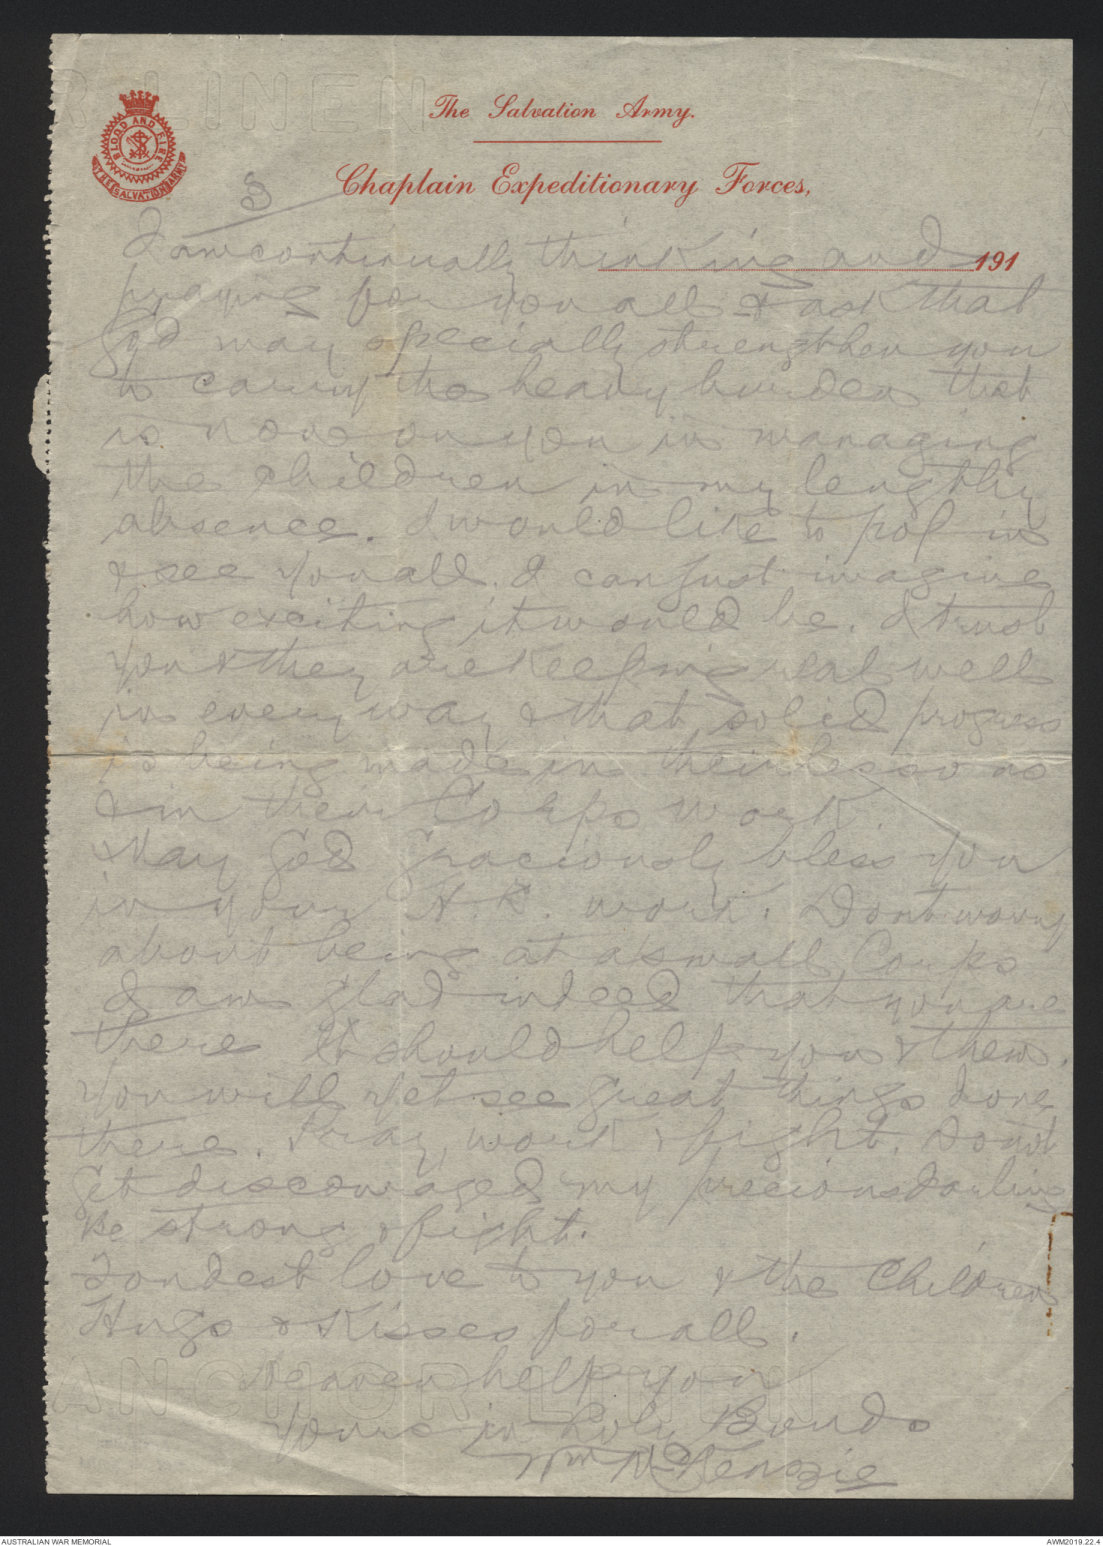 ANCHOR LINEN
BLOOD AND FIRE
THE SALVATION ARMY
The Salvation Army.
Chaplain Expeditionary Forces,
191
I am continually thinking and
praying for you all & ask that
God may specially strengthen you
to carry the heavy burden that
is now on you in managing
the children in my lengthy
absence. I would like to pop in
& see you all. I can just imagine
how exciting it would be. I trust
you & they are keeping real well
in every way & that solid progress
is being made in their lessons
& in their Corps work
May God graciously bless you
in your work. Dont worry
about being at a small Corps
I am glad indeed that you are
there It should help you & them.
You will yet see great things done
there. Pray, work & fight. Do not
get discouraged my precious darling
Be strong & fight.
Fondest love to you & the Children
Hugs & Kisses for all.
Heaven help you
Yours in holy Bonds
Wm McKenzie
ANCHOR LINEN
AUSTRALIAN WAR MEMORIAL
AWM2019.22.4